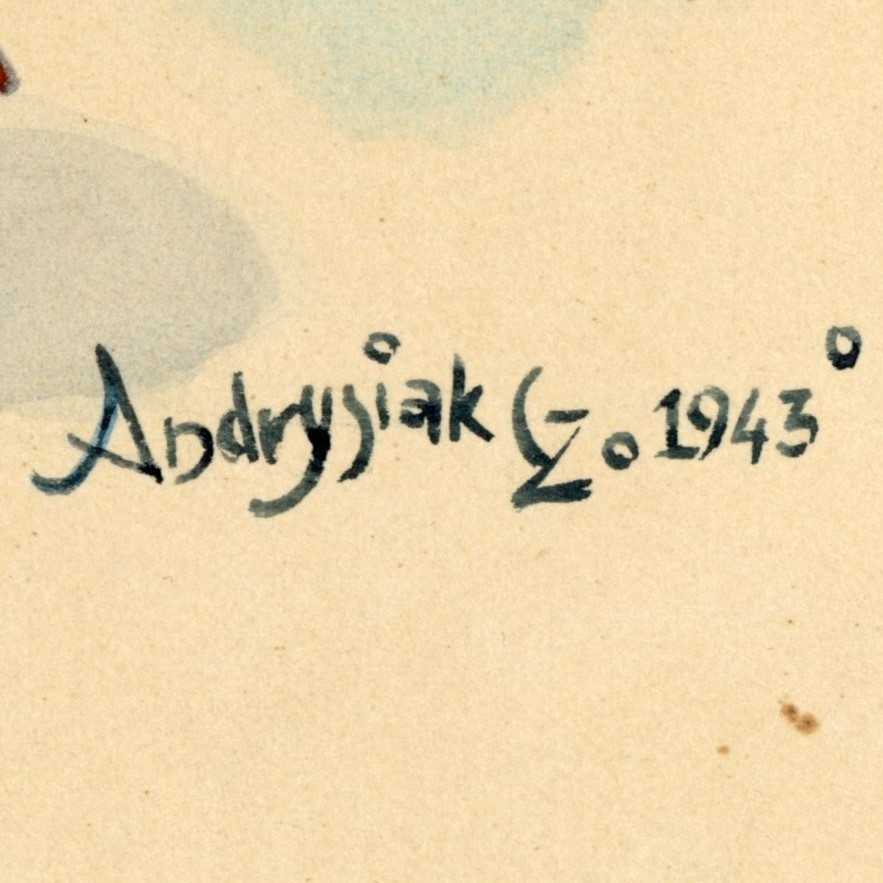 Andrysiak Cz. 1943°